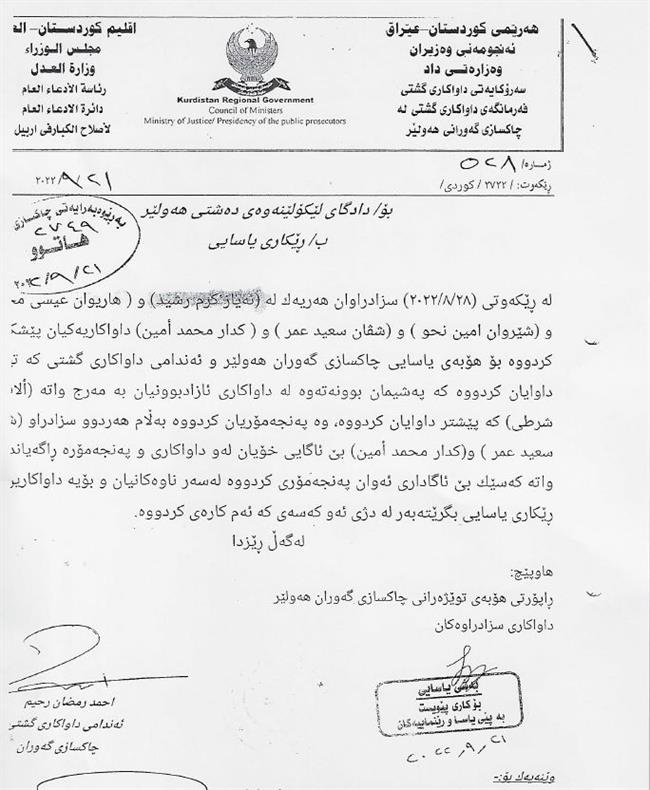 هەرێمی كوردستان–عێراق
ئەنجومەنی وەزیران
وەزارەتی داد
سەرۆكایەتی داواكاری گشتی
فەرمانگەی داواكاری گشتی لە
چاكسازی گەورانی هەولێر
Kurdistan Regional Government
Council of Ministers
Ministry of Justice/ Presidency of the public prosecutors
اقليم كوردستان–
مجلس الوزراء
وزارة العدل
رئاسة الأدعاء العام
دائرة الادعاء العام
لأصلاح الكبارفى اربيل
ژمارە/ ٥٢٨
ڕێكەوت: / ٢٧٢٢ / كوردی/
٢٠٢٢/٩/٢١
بەڕێوەبەرایەتی چاكسازی
٢٧٤٩
هاتوو
٩/٢١
بۆ/ دادگای لێكۆڵینەوەی دەشتی هەولێر
ب/ ڕێكاری یاسایی
لە ڕێكەوتی (٢٠٢٢/٨/٢٨) سزادراوان هەریەك لە و ( هاریوان عیسی
و (شێروان امین نحو ) و (شڤان سعید عمر ) و ( كدار محمد أمین) داواكاریەكیان
كردووە بۆ هۆبەی یاسایی چاكسازی گەوران هەولێر و ئەندامی داواكاری گشتی كە
داوایان كردووە كە پەشیمان بوونەتەوە لە داواكاری ئازادبوونیان بە مەرج واتە
شرطی) كە پێشتر داوایان كردووە، وە پەنجەمۆریان كردووە بەڵام هەردوو سزادراو
سعید عمر ) و(كدار محمد أمین) بێ ئاگایی خۆیان لەو داواكاری و پەنجەمۆرە
واتە كەسێك بێ ئاگاداری ئەوان پەنجەمۆری كردووە لەسەر ناوەكانیان و بۆیە
ڕێكاری یاسایی بگرێتەبەر لە دژی ئەو كەسەی كە ئەم كارەی كردووە.
لەگەڵ ڕێزدا
هاوپێچ:
ڕاپۆرتی هۆبەی توێژەرانی چاكسازی گەوران هەولێر
داواكاری سزادراوەكان
احمد رمضان رحیم
ئەندامی داواكاری گشتی
چاكسازی گەوران
بەشی یاسایی
بۆ كاری پێویست
بە پێی یاسا و ڕێنماییەكان
٢٠٢٢/٩/٢١
وێنەیەك بۆ:-